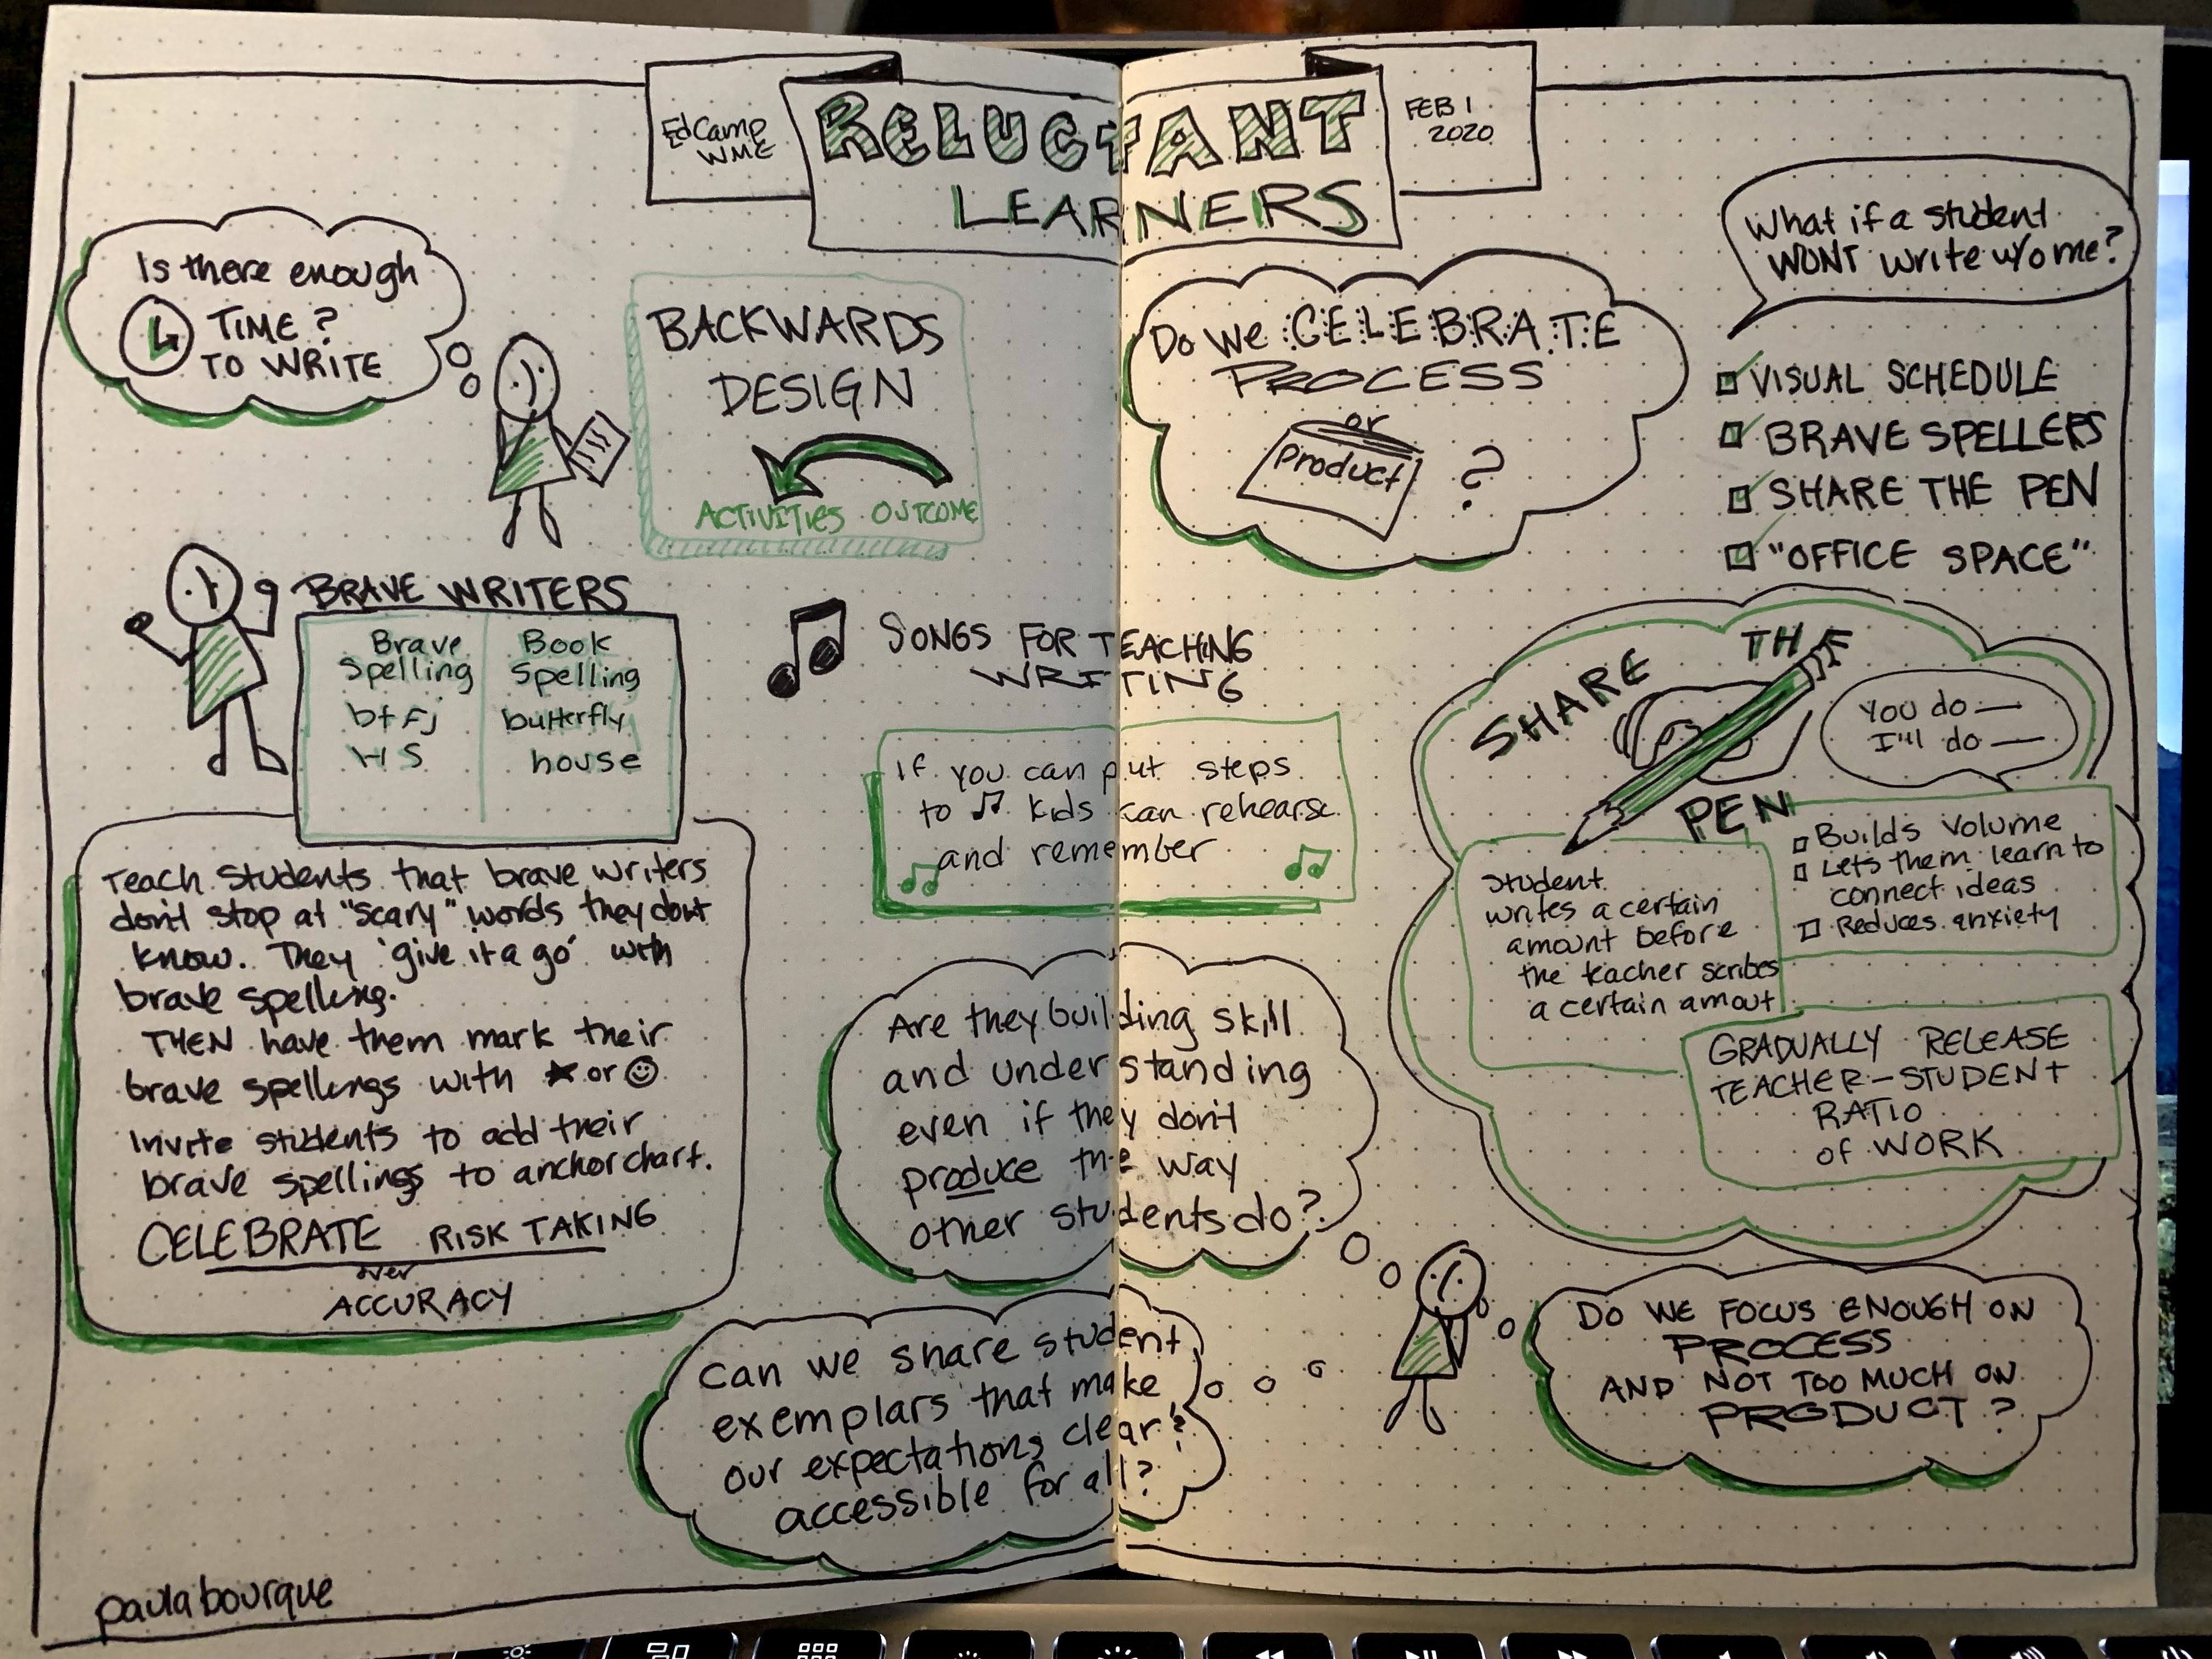 EdCamp
WME
RELUCTANT
LEARNERS
FEB 1
2020
Is there enough
TIME?
TO WRITE
BACKWARDS
DESIGN
ACTIVITIES OUTCOME
Do We CELEBRATE
PROCESS
or
Product
?
What if a student
WONT write w/o me?
VISUAL SCHEDULE
BRAVE SPELLERS
SHARE THE PEN
"OFFICE SPACE"
BRAVE WRITERS
Brave
Spelling
btfj
HS
Book
Spelling
butterfly
house
Teach Students that brave writers
don't stop at "scary" words they dont
know. They 'give it a go' with
brave spelling.
THEN have them mark their
brave spellings with ★ or ☺
Invite students to add their
brave spellings to anchor chart.
CELEBRATE RISK TAKING
over
ACCURACY
SONGS FOR TEACHING
WRITING
If you can put steps
to ♫ kids can rehearse
and remember
Are they building skill
and understanding
even if they don't
produce the way
other students do?
Can we share student
exemplars that make
our expectations clear &
accessible for all?
SHARE THE
PEN
You do —
I'll do —
Student
writes a certain
amount before
the teacher scribes
a certain amout
Builds Volume
Lets them learn to
connect ideas
Reduces anxiety
GRADUALLY RELEASE
TEACHER-STUDENT
RATIO
of WORK
DO WE FOCUS ENOUGH ON
PROCESS
AND NOT TOO MUCH ON
PRODUCT?
paulabourque